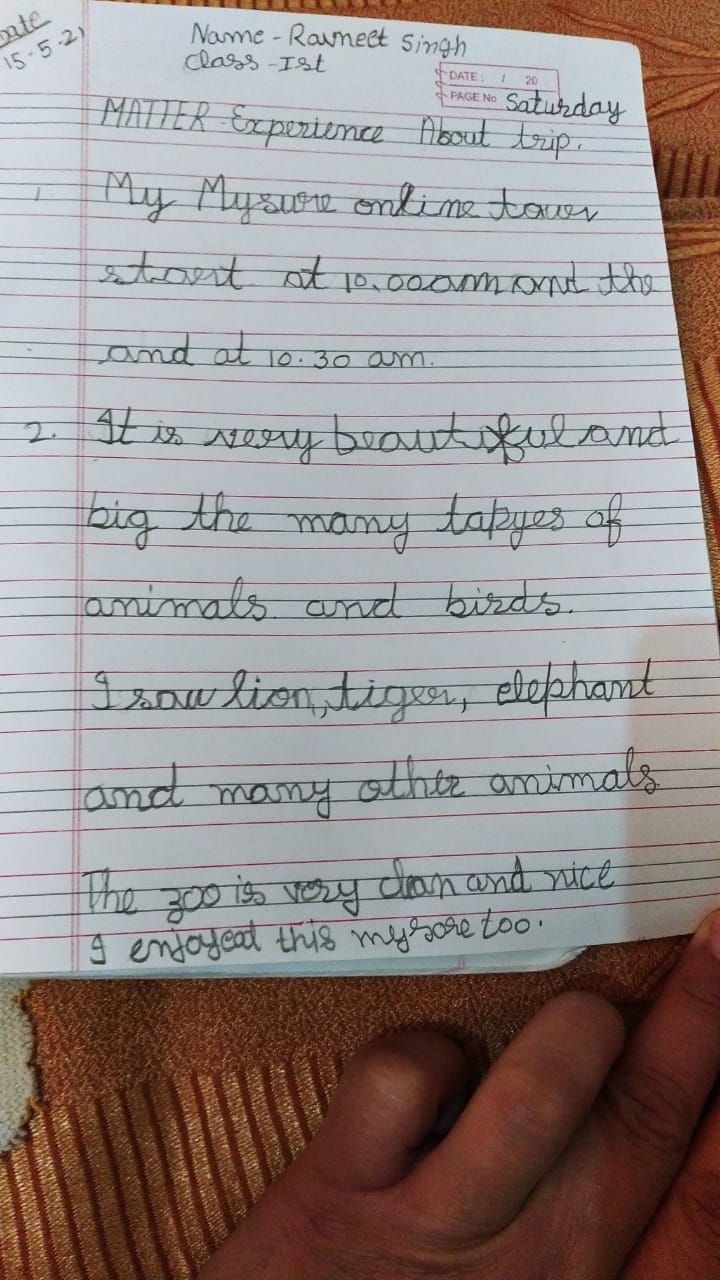 Date
15-5-21
Name - Ravneet Singh
Class - Ist
DATE: / 20
PAGE No
Saturday
MATTER - Experience About trip.
1 My Mysure online touer
staert at 10.00am and the
and at 10.30 am.
2. It is veery beautiful and
big the many tapyes of
animals and birds.
I saw lion, tiger, elephant
and many other animals
The zoo is very clean and nice
I enjoyeat this mysore too.